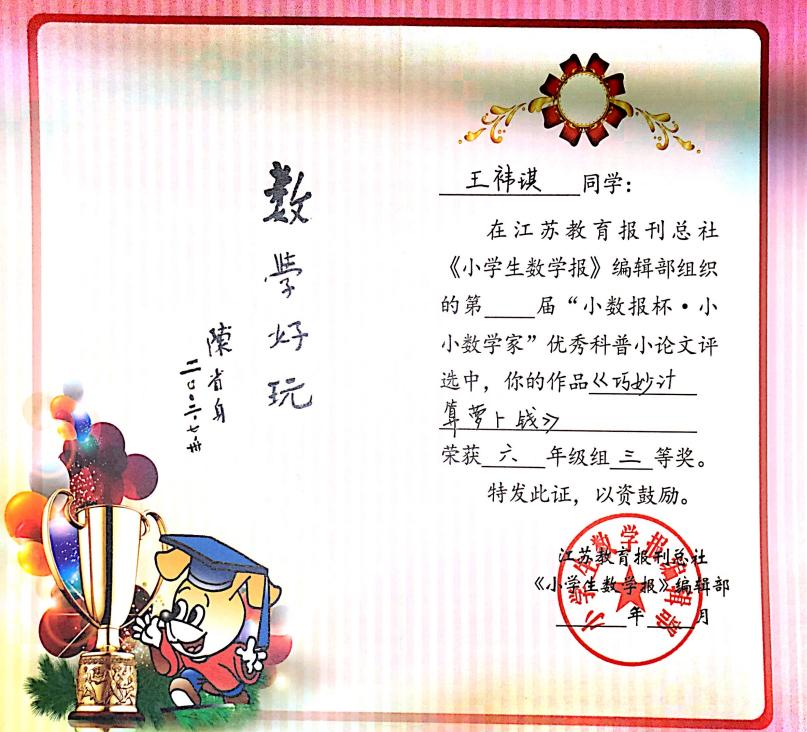 数学好玩
陳省身
二〇〇二.七.廿
王祎琪 同学：
在江苏教育报刊总社
《小学生数学报》编辑部组织
的第____届“小数报杯·小
小数学家”优秀科普小论文评
选中，你的作品《巧妙计
算萝卜战》
荣获 六 年级组 三 等奖。
特发此证，以资鼓励。
江苏教育报刊总社
《小学生数学报》编辑部
____年____月
小学生数学报编辑部